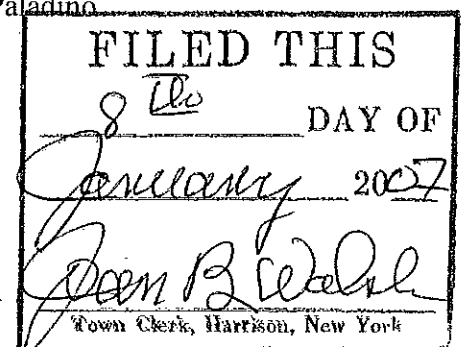 Paladino
FILED THIS
8th DAY OF
January 2007
Joan B Walsh
Town Clerk, Harrison, New York